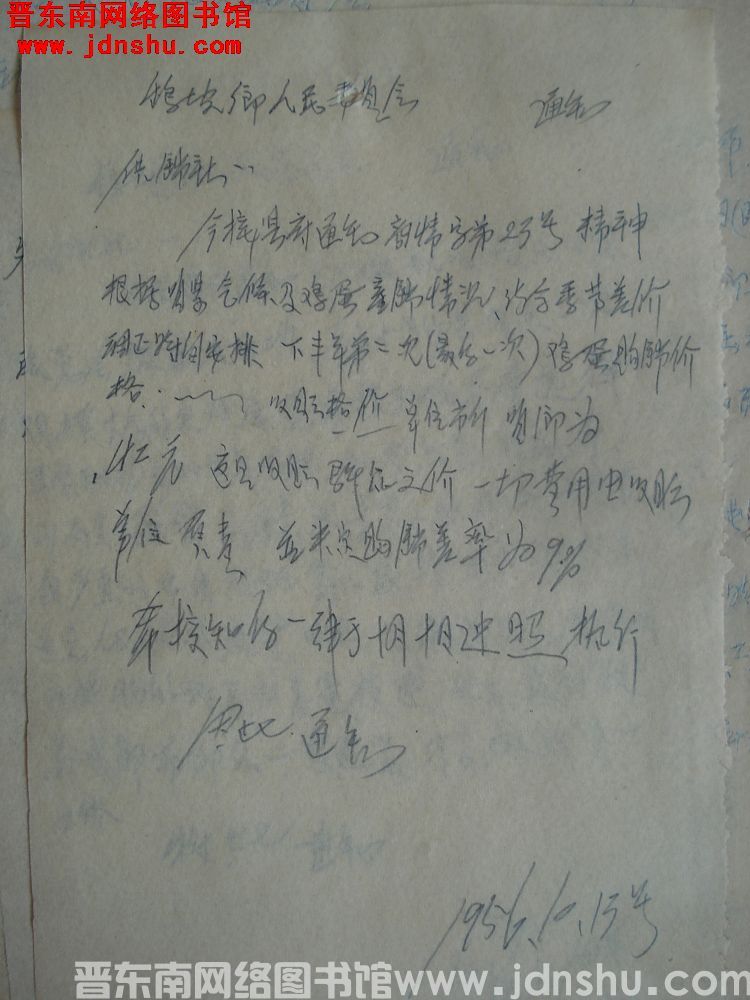 晋东南网络图书馆
www.jdnshu.com
坡乡人民委员会 通知
供销社：
今接县府通知 商情字第23号 精神
根据 气候及鸡蛋产销情况、结合季节差价
调正时间安排 下半年第二次(最后一次)鸡蛋购销价
格. 收购格价 单位市斤 即为
元 这是收购 之价 一切费用由收购
单位负责 并 购销差率为9%
希接知后一律于十月十 照执行
此通知
1956.10.13号
晋东南网络图书馆www.jdnshu.com